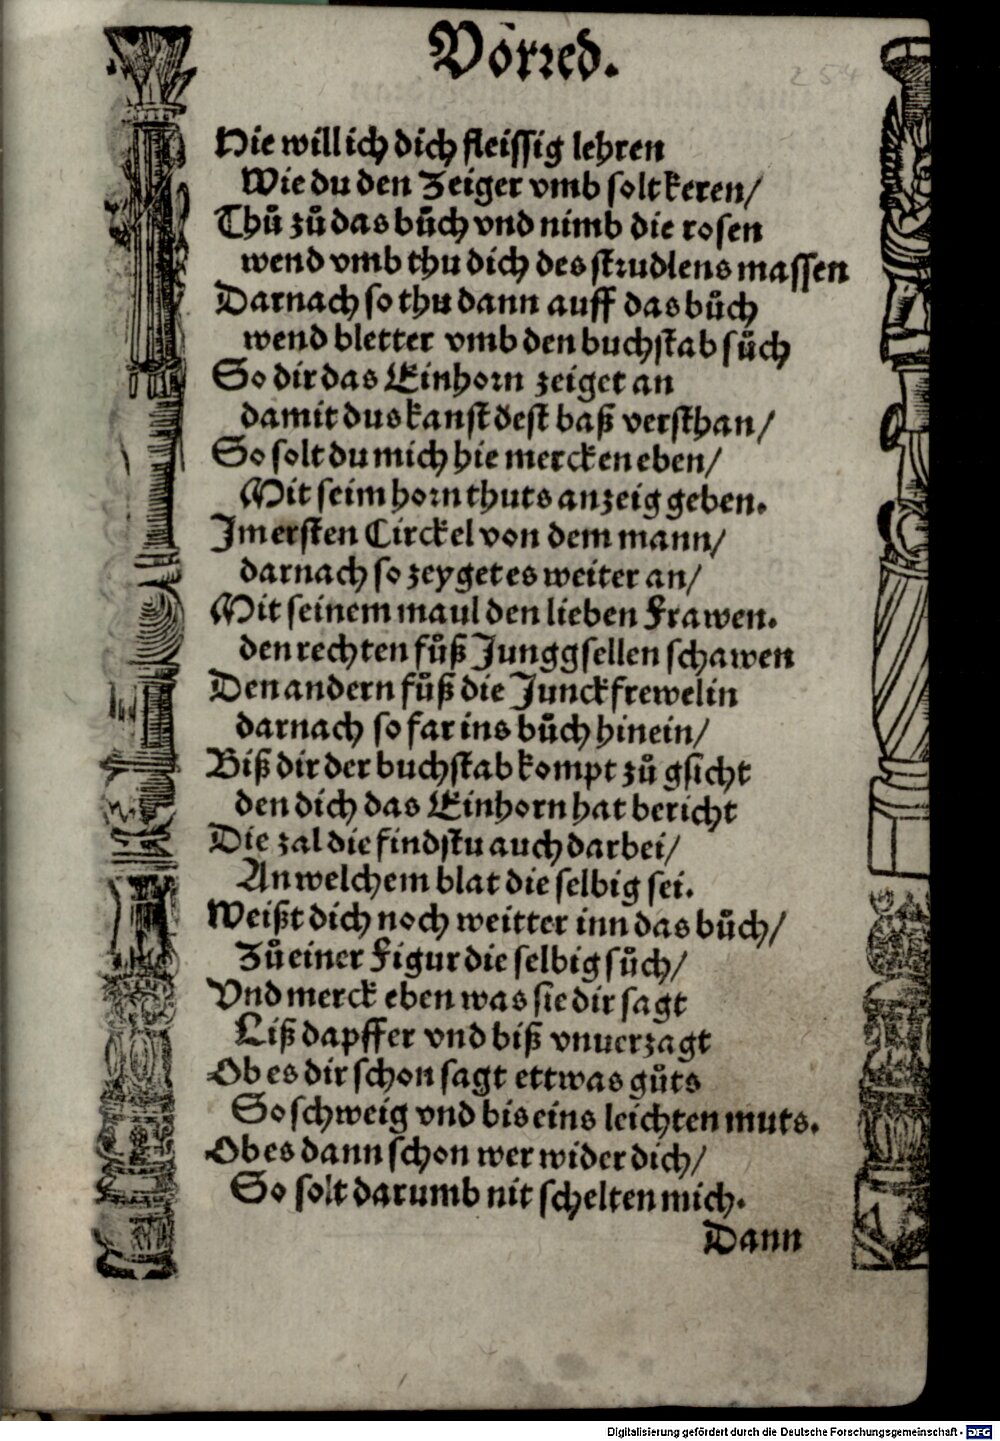 Vorred.
254
Hie will ich dich fleissig lehren
Wie du den Zeiger vmb solt keren/
Thů zů das bůch vnd nimb die rosen
wend vmb thu dich des strudlens massen
Darnach so thu dann auff das bůch
wend bletter vmb den buchstab sůch
So dir das Einhorn zeiget an
damit dus kanst dest baß versthan/
So solt du mich hie mercken eben/
Mit seim horn thuts anzeig geben.
Im ersten Circkel von dem mann/
darnach so zeyget es weiter an/
Mit seinem maul den lieben Frawen.
den rechten fůß Junggsellen schawen
Den andern fůß die Junckfrewelin
darnach so far ins bůch hinein/
Biß dir der buchstab kompt zů gsicht
den dich das Einhorn hat bericht
Die zal die findstu auch darbei/
An welchem blat die selbig sei.
Weißt dich noch weitter inn das bůch/
Zů einer Figur die selbig sůch/
Vnd merck eben was sie dir sagt
Liß dapffer vnd biß vnuerzagt
Ob es dir schon sagt ettwas gůts
So schweig vnd bis eins leichten muts.
Ob es dann schon wer wider dich/
So solt darumb nit schelten mich.
Dann
Digitalisierung gefördert durch die Deutsche Forschungsgemeinschaft - DFG